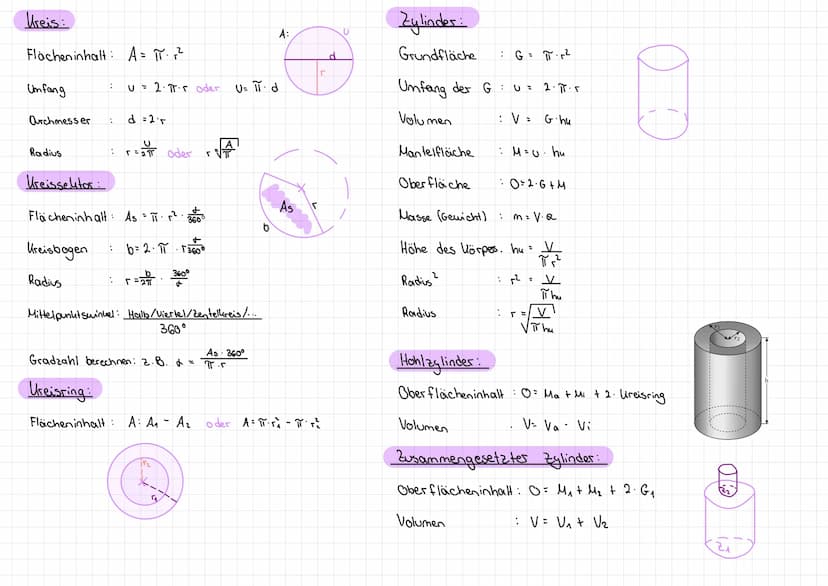 Kreis:
A:
U
d
r
Flächeninhalt : A = π · r²
Umfang : u = 2 · π · r oder U = π · d
Durchmesser : d = 2 · r
Radius : r = U/2π oder r √A/π
Kreissektor:
As
r
b
Flächeninhalt : As = π · r² · α/360°
Kreisbogen : b = 2 · π · r α/360°
Radius : r = b/2π · 360°/α
Mittelpunktswinkel: Halb/Viertel/Zentelkreis/... / 360°
Gradzahl berechnen: z.B. α = As · 360° / π · r
Kreisring:
Flächeninhalt : A: A₁ - A₂ oder A = π · r₁² - π · r₂²
r₂
r₁
Zylinder:
Grundfläche : G = π · r²
Umfang der G : u = 2 · π · r
Volumen : V = G · hk
Mantelfläche : M = u · hk
Oberfläche : O = 2 · G + M
Masse (Gewicht) : m = V · ϱ
Höhe des Körpes. hk = V / π r²
Radius² : r² = V / π hk
Radius : r = √V / π hk
Hohlzylinder:
Oberflächeninhalt : O = Ma + Mi + 2 · Kreisring
Volumen : V = Va - Vi
r₁
r₂
h
Zusammengesetzter Zylinder:
Oberflächeninhalt : O = M₁ + M₂ + 2 · G₁
Volumen : V = V₁ + V₂
Z₂
Z₁